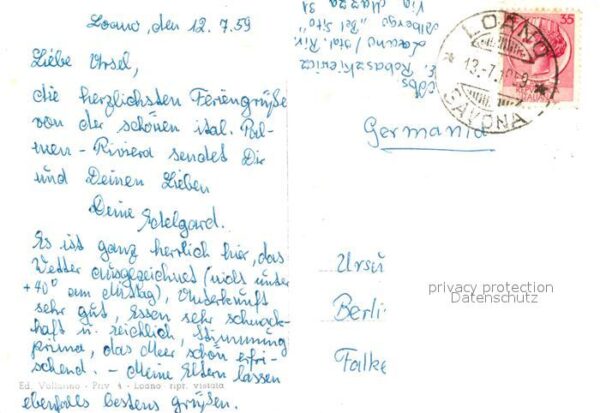 Loano, den 12.7.59
Liebe Ursel,
die herzlichsten Feriengrüße
von der schönen ital. Pal-
men-Riviera sendet Dir
und Deinen Lieben
Deine Edelgard.
Es ist ganz herrlich hier, das
Wetter ausgezeichnet (nicht unter
+40° am Mittag), Unterkunft
sehr gut, Essen sehr schmack-
haft u. reichlich, Stimmung
prima, das Meer schön erfri-
schend. - Meine Eltern lassen
ebenfalls bestens grüßen.
Ed. Vallarino - Priv 4 - Loano ripr. vietata
E. Robaszkiewicz
Loano/ital. Riv.
Albergo "Bel Sito"
Via
LOANO
13.-7.1959
SAVONA
35
Germania
Ursu
Berli
Falke
privacy protection
Datenschutz